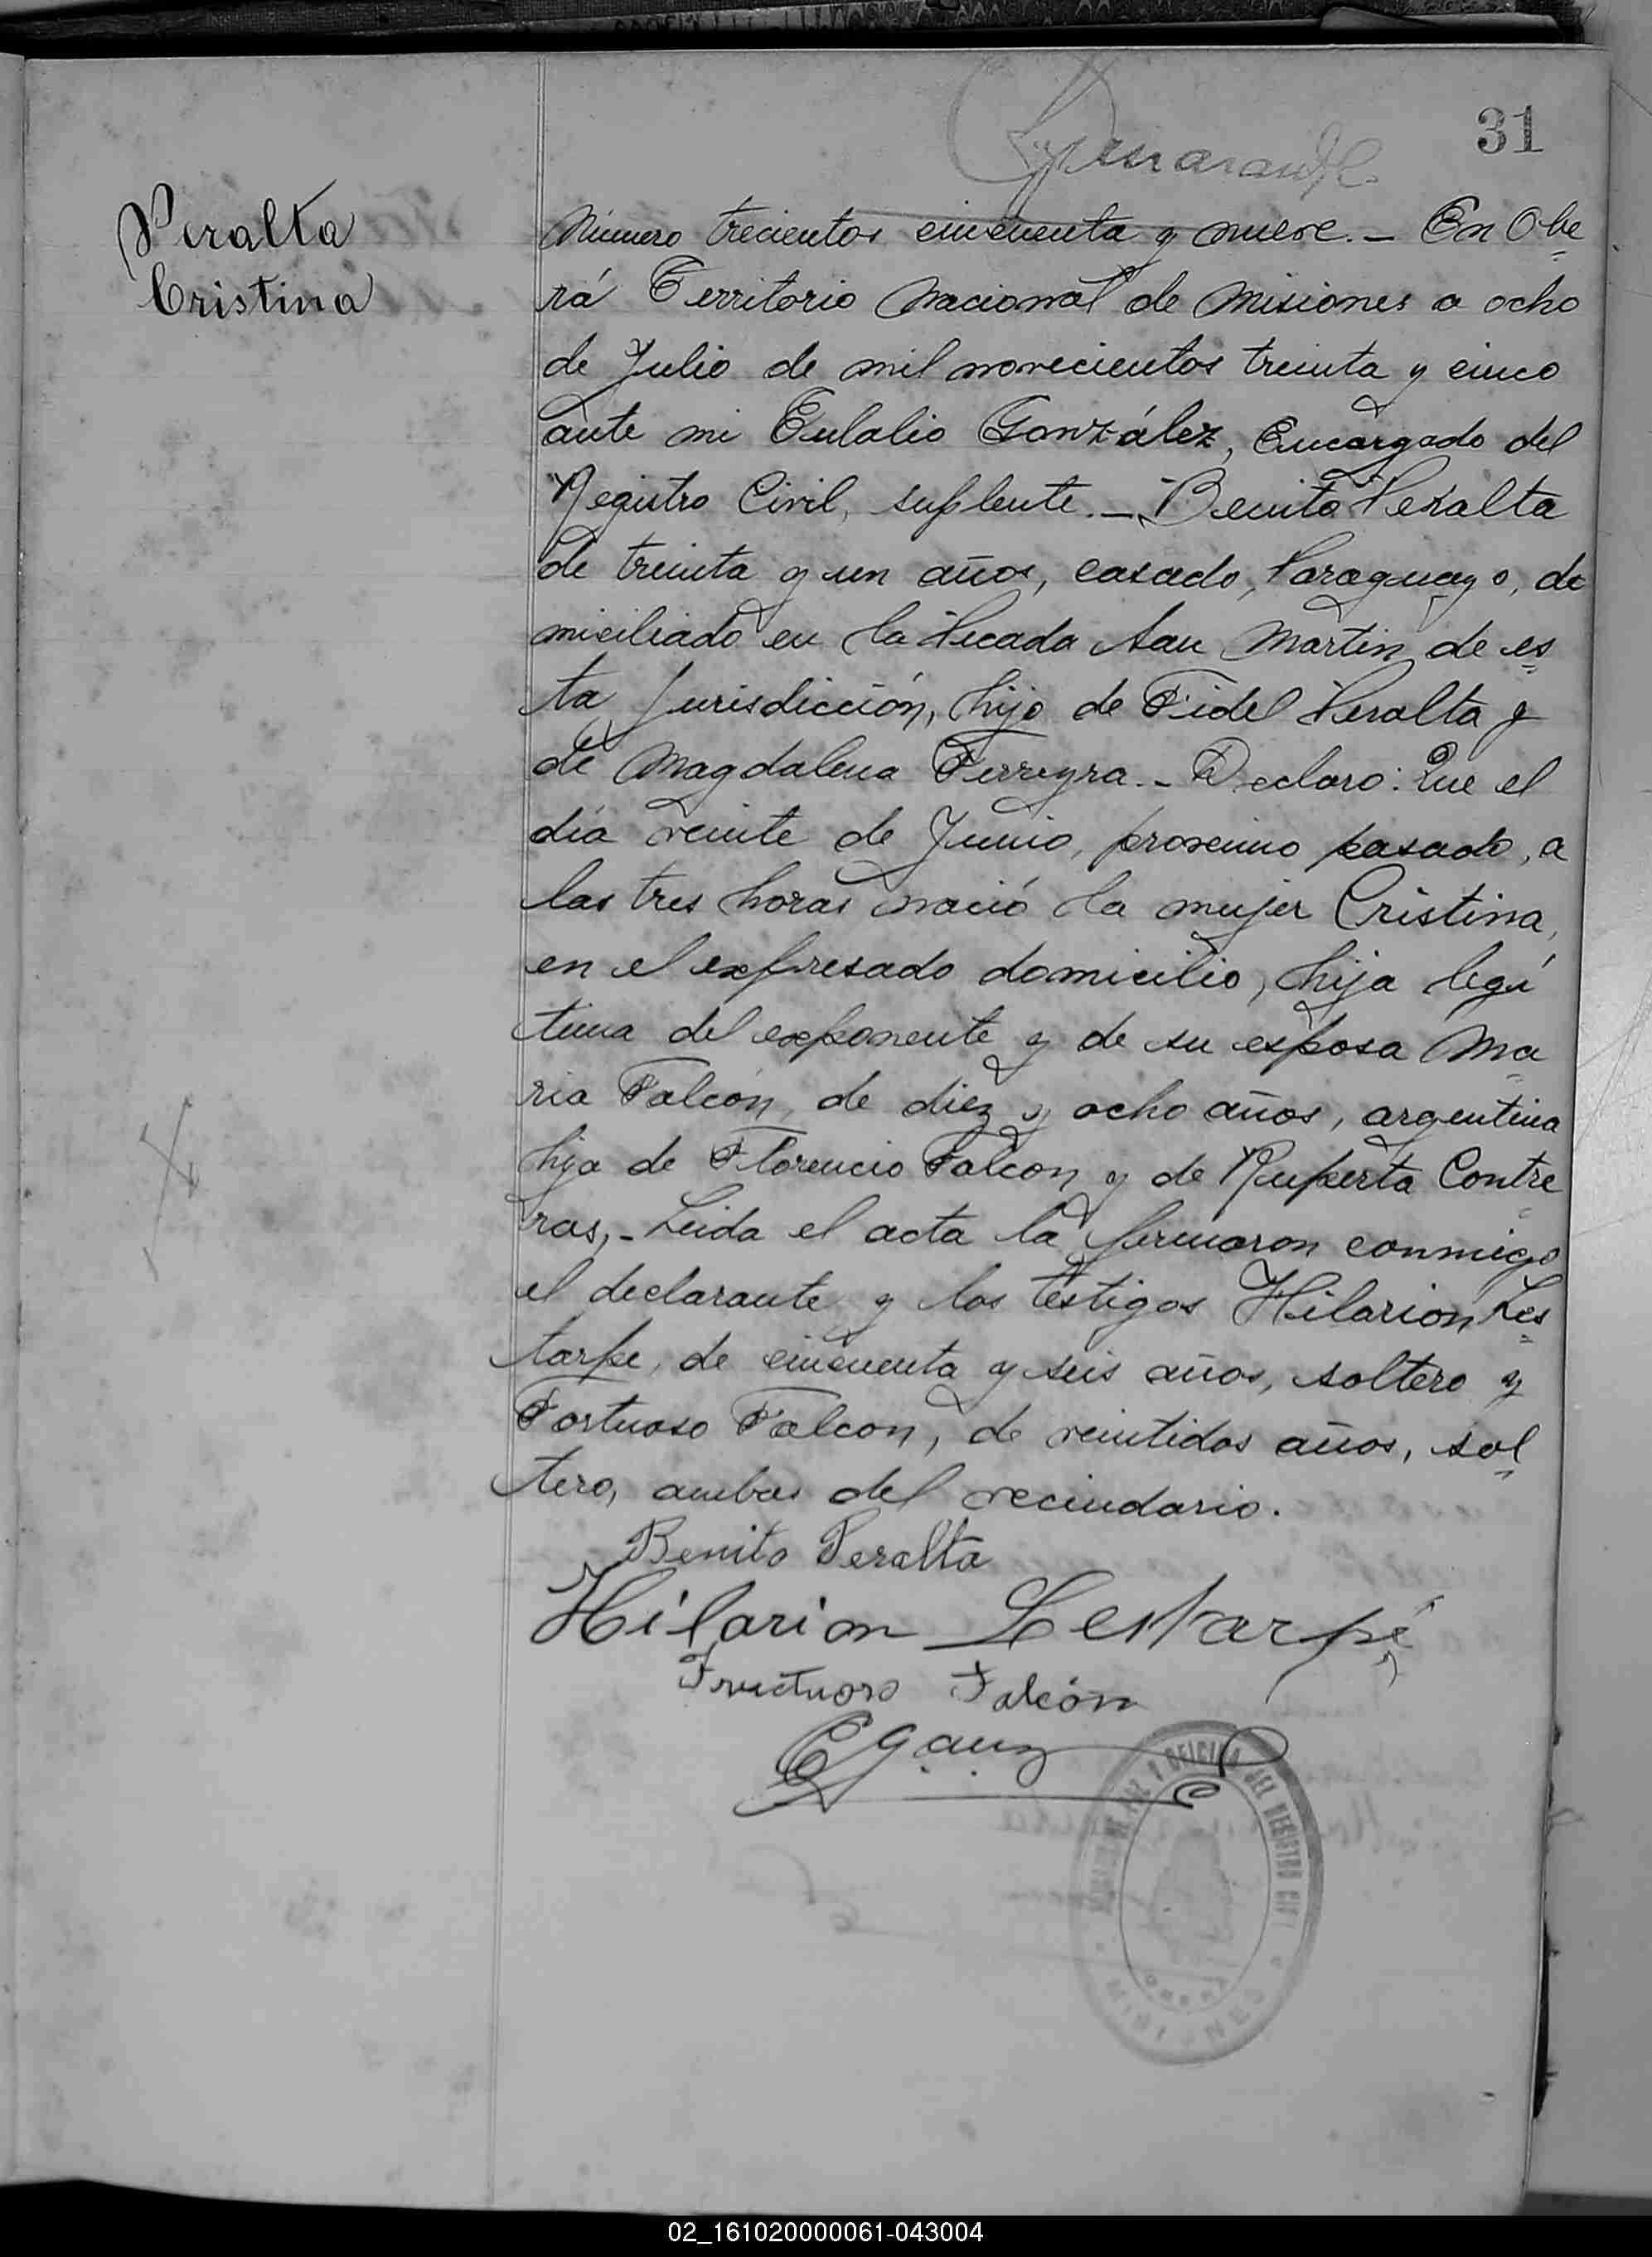 31
Peralta
Cristina
Número trecientos cincuenta y nueve. – En Obe
rá Territorio Nacional de Misiones a ocho
de Julio de mil novecientos treinta y cinco
ante mi Eulalio González, Encargado del
Registro Civil, suplente. – Benito Peralta
de treinta y un años, casado, Paraguayo, do
miciliado en la Picada San Martin de es
ta Jurisdicción, hijo de Fidel Peralta y
de Magdalena Ferreyra. – Declaro: Que el
día veinte de Junio, proximo pasado, a
las tres horas nació la mujer Cristina,
en el expresado domicilio, hija legí
tima del exponente y de su esposa Ma
ria Falcón, de diez y ocho años, argentina
hija de Florencio Falcon y de Ruperta Contre
ras, – Leida el acta la firmaron conmigo
el declarante y los testigos Hilarion Les
tarpe, de cincuenta y seis años, soltero y
Fortuoso Falcon, de veintidos años, sol
tero, ambos del vecindario.
Benito Peralta
Hilarion Lestarpé
Fructuoso Falcón
OFICINA DEL REGISTRO CIVIL
MISIONES
02_161020000061-043004